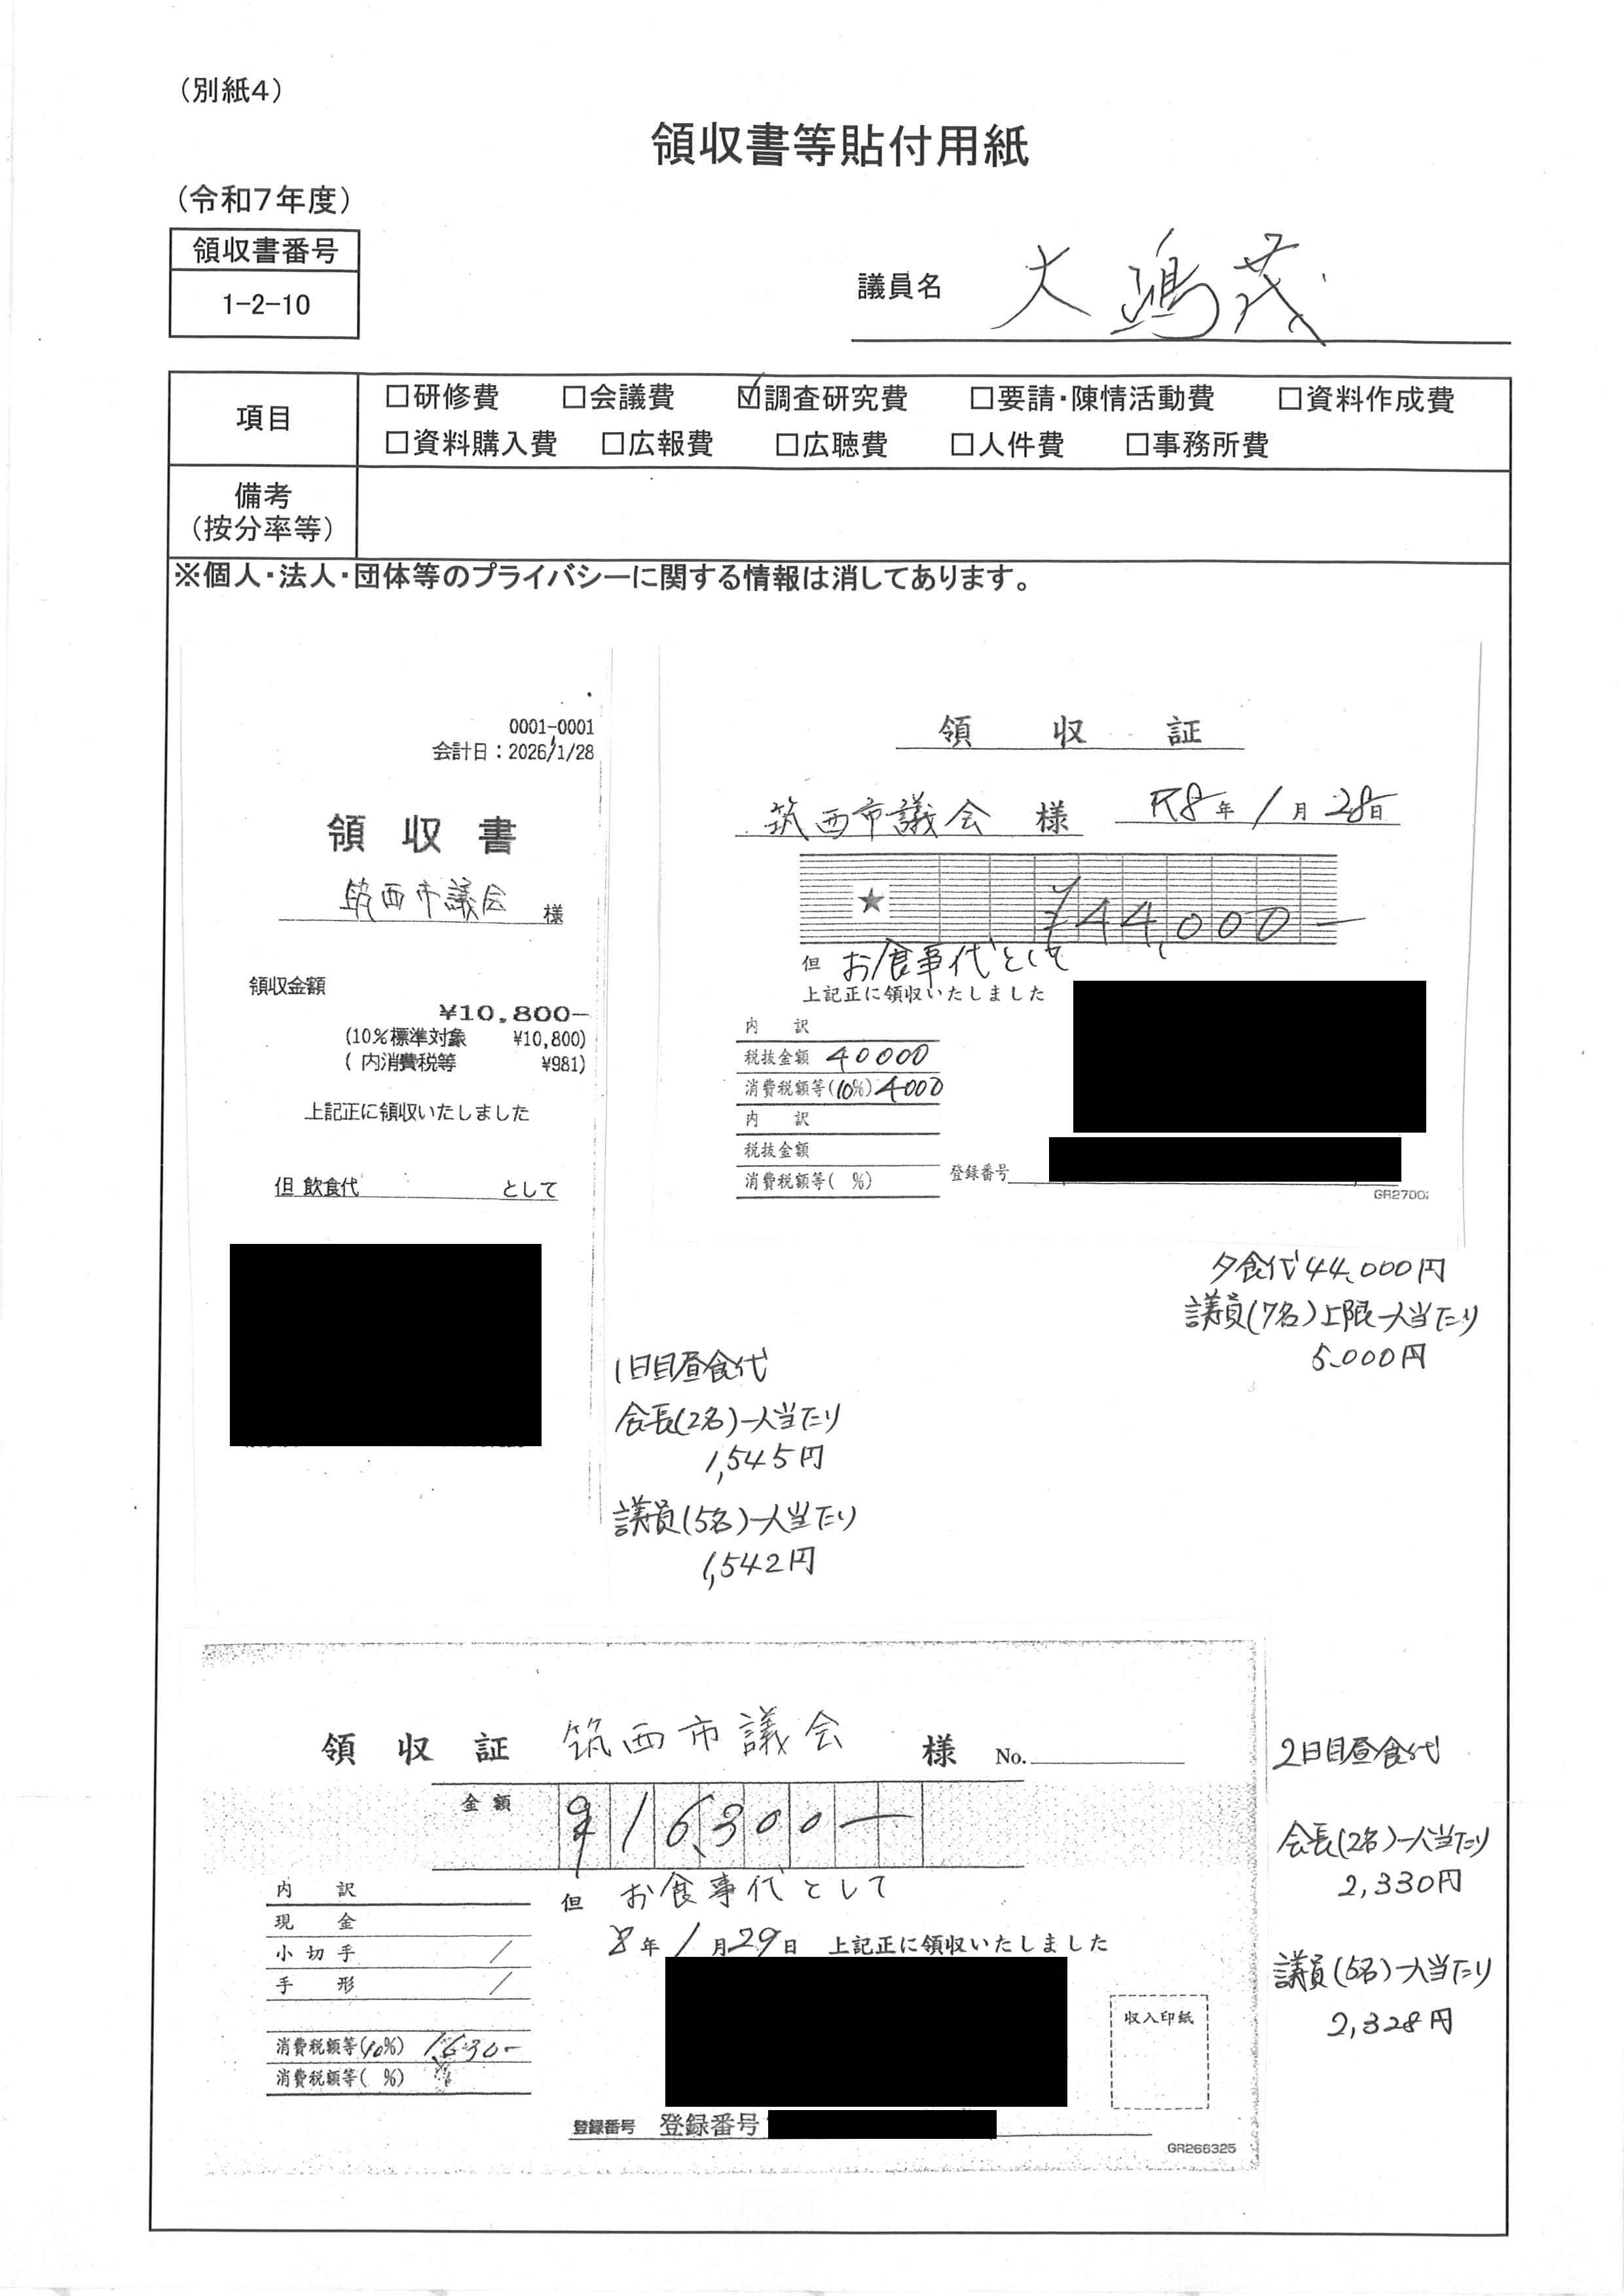 （別紙４）
領収書等貼付用紙
（令和７年度）
領収書番号
1-2-10
議員名 大嶋茂
項目
□研修費 □会議費 ☑調査研究費 □要請・陳情活動費 □資料作成費
□資料購入費 □広報費 □広聴費 □人件費 □事務所費
備考
（按分率等）
※個人・法人・団体等のプライバシーに関する情報は消してあります。
0001-0001
会計日：2026/1/28
領収書
筑西市議会 様
領収金額
¥10,800-
(10%標準対象 ¥10,800)
( 内消費税等 ¥981)
上記正に領収いたしました
但 飲食代 として
領収証
筑西市議会 様 R8年1月28日
★ ¥44,000-
但 お食事代として
上記正に領収いたしました
内訳
税抜金額 40000
消費税額等(10%) 4000
内訳
税抜金額
消費税額等( %)
登録番号
GR2700
夕食代44,000円
議員(7名)上限一人当たり
5,000円
1日目昼食代
会長(2名)一人当たり
1,545円
議員(5名)一人当たり
1,542円
領収証 筑西市議会 様 No.
金額 ¥16,300-
但 お食事代として
8年1月29日 上記正に領収いたしました
内訳
現金
小切手 /
手形 /
消費税額等(10%) 1,630-
消費税額等( %)
収入印紙
登録番号 登録番号
GR266325
2日目昼食代
会長(2名)一人当たり
2,330円
議員(5名)一人当たり
2,328円